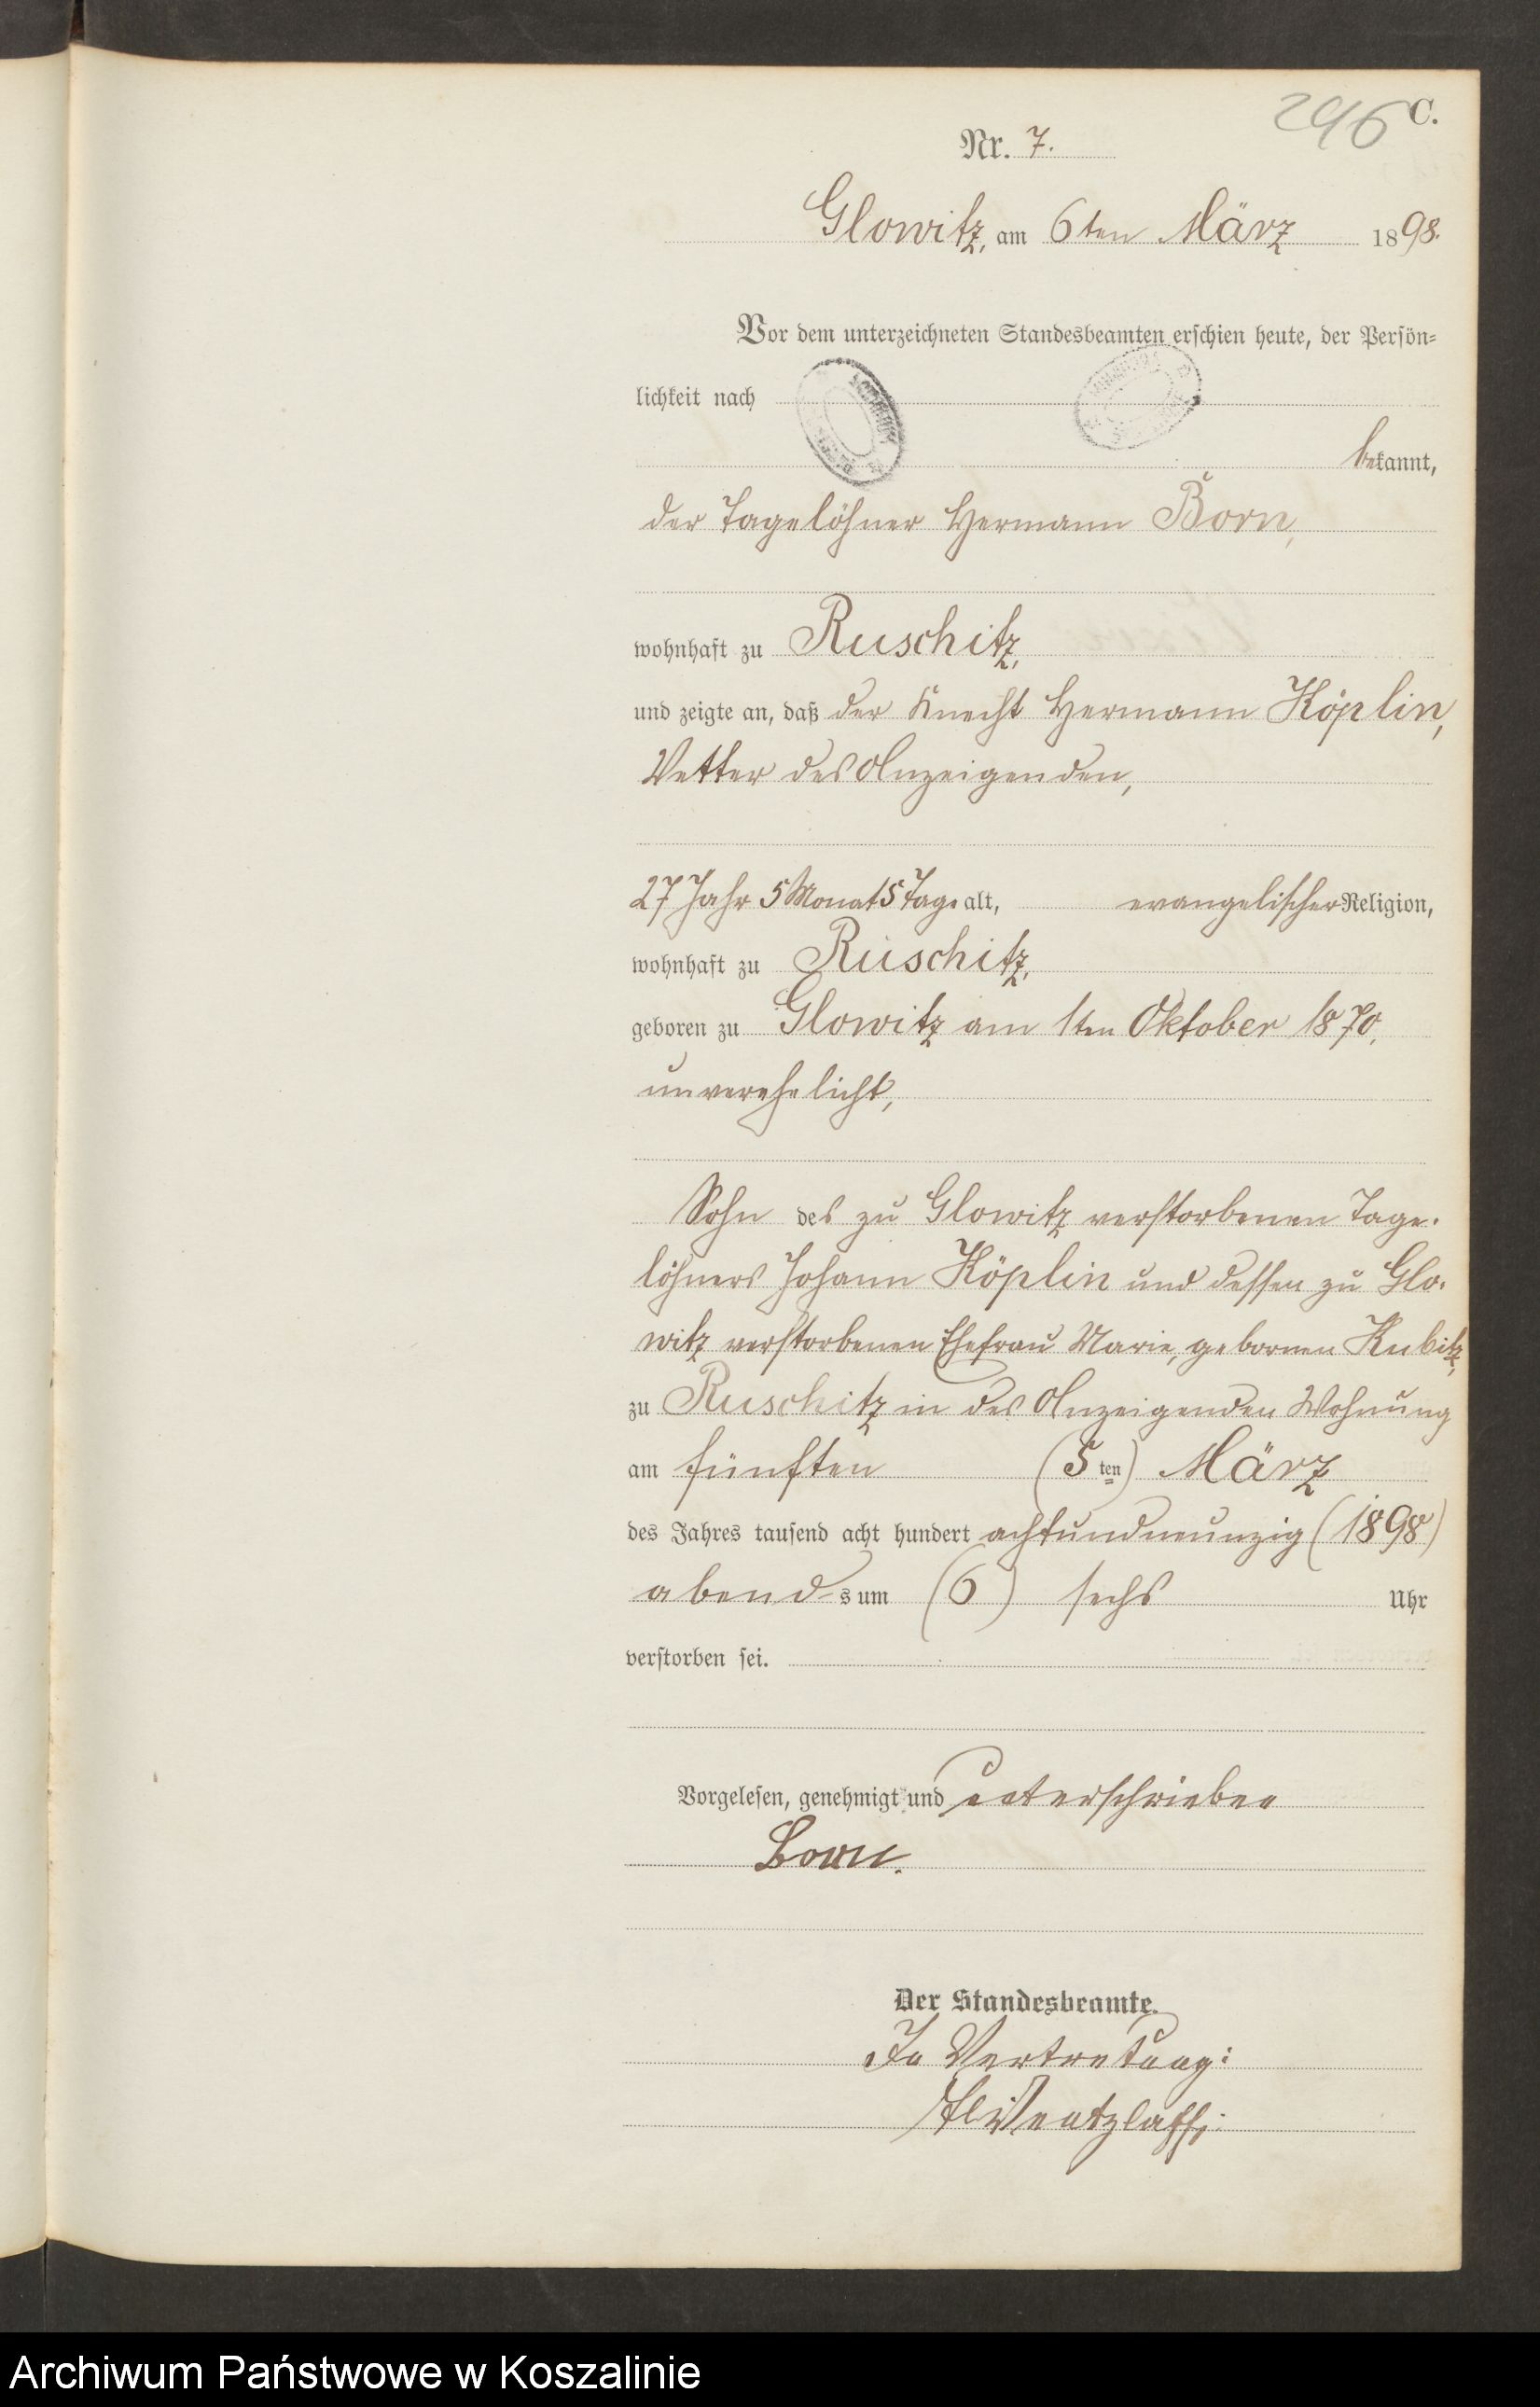 296 C.
Nr. 7.
Glowitz, am 6ten März 1898.
Vor dem unterzeichneten Standesbeamten erschien heute, der Persön-
lichkeit nach
bekannt,
der Tagelöhner Hermann Born,
wohnhaft zu Ruschitz,
und zeigte an, daß der Knecht Hermann Köplin,
Vetter des Anzeigenden,
27 Jahr 5 Monat 5 Tage alt, evangelischer Religion,
wohnhaft zu Ruschitz,
geboren zu Glowitz am 1ten Oktober 1870,
unverehelicht,
Sohn des zu Glowitz verstorbenen Tage-
löhners Johann Köplin und dessen zu Glo-
witz verstorbenen Ehefrau Marie, gebornen Kubitz,
zu Ruschitz in des Anzeigenden Wohnung
am fünften (5ten) März
des Jahres tausend acht hundert achtundneunzig (1898)
abends um (6) sechs Uhr
verstorben sei.
Vorgelesen, genehmigt und unterschrieben
Born.
Der Standesbeamte.
In Vertretung:
Wentzlaff.
Archiwum Państwowe w Koszalinie